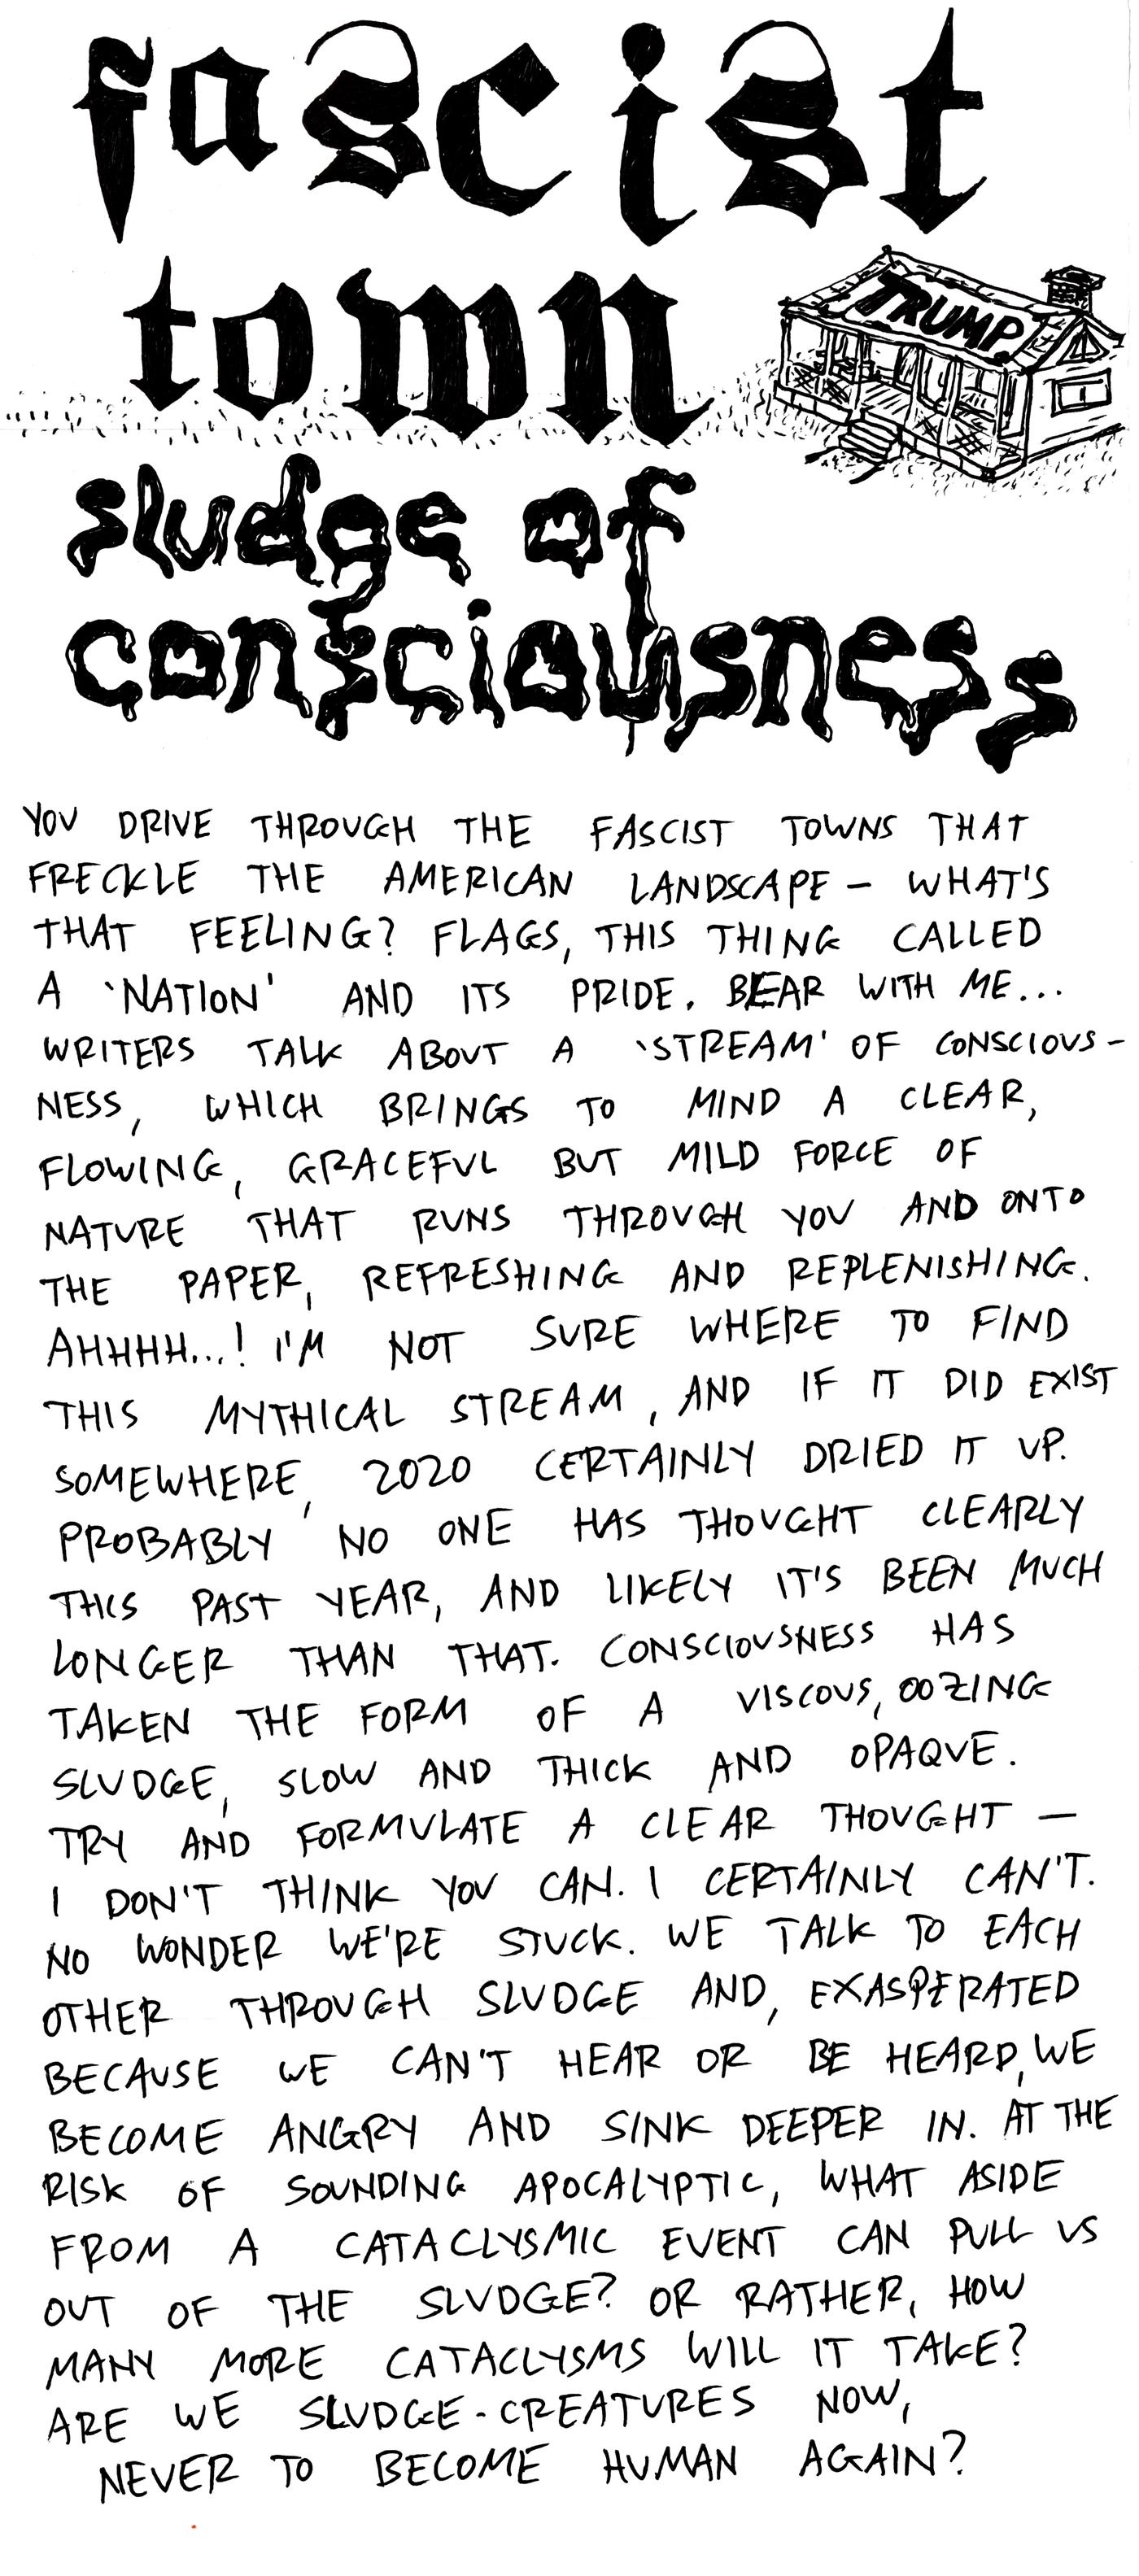 fascist
town
TRUMP
sludge of
consciousness
YOU DRIVE THROUGH THE FASCIST TOWNS THAT
FRECKLE THE AMERICAN LANDSCAPE – WHAT'S
THAT FEELING? FLAGS, THIS THING CALLED
A 'NATION' AND ITS PRIDE. BEAR WITH ME...
WRITERS TALK ABOUT A 'STREAM' OF CONSCIOUS-
NESS, WHICH BRINGS TO MIND A CLEAR,
FLOWING, GRACEFUL BUT MILD FORCE OF
NATURE THAT RUNS THROUGH YOU AND ONTO
THE PAPER, REFRESHING AND REPLENISHING.
AHHHH...! I'M NOT SURE WHERE TO FIND
THIS MYTHICAL STREAM, AND IF IT DID EXIST
SOMEWHERE, 2020 CERTAINLY DRIED IT UP.
PROBABLY NO ONE HAS THOUGHT CLEARLY
THIS PAST YEAR, AND LIKELY IT'S BEEN MUCH
LONGER THAN THAT. CONSCIOUSNESS HAS
TAKEN THE FORM OF A VISCOUS, OOZING
SLUDGE, SLOW AND THICK AND OPAQUE.
TRY AND FORMULATE A CLEAR THOUGHT –
I DON'T THINK YOU CAN. I CERTAINLY CAN'T.
NO WONDER WE'RE STUCK. WE TALK TO EACH
OTHER THROUGH SLUDGE AND, EXASPERATED
BECAUSE WE CAN'T HEAR OR BE HEARD, WE
BECOME ANGRY AND SINK DEEPER IN. AT THE
RISK OF SOUNDING APOCALYPTIC, WHAT ASIDE
FROM A CATACLYSMIC EVENT CAN PULL US
OUT OF THE SLUDGE? OR RATHER, HOW
MANY MORE CATACLYSMS WILL IT TAKE?
ARE WE SLUDGE-CREATURES NOW,
NEVER TO BECOME HUMAN AGAIN?